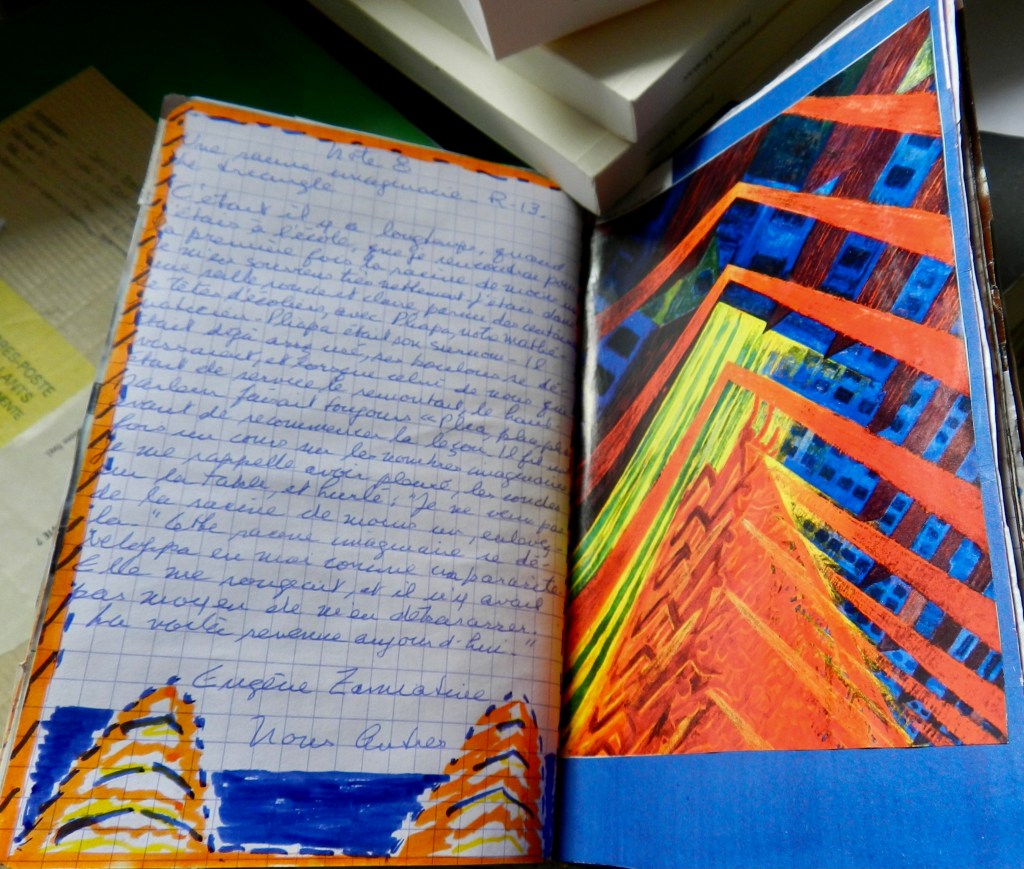 Note 8
Une racine imaginaire - R-13 -
Le triangle
C'était il y a longtemps, quand
j'étais à l'école, que je rencontrai pour
la première fois la racine de moins un.
Je m'en souviens très nettement. J'étais dans
une salle ronde et claire, parmi des centaines
de têtes d'écoliers, avec Pliapa, notre mathé-
maticien. Pliapa était son surnom - Il
était déjà très usé, ses boulons se dé-
vissaient, et lorsque celui de nous qui
était de service le remontait, le haut-
parleur faisait toujours "Plia, plia
avant de recommencer la leçon. Il fit une
fois un cours sur les nombres imaginaires
Je me rappelle avoir pleuré, les coudes
sur la table, et hurlé : "Je ne veux pas
de la racine de moins un, enlevez-
la." Cette racine imaginaire se dé-
veloppa en moi comme un parasite
Elle me rongeait, et il n'y avait
pas moyen de m'en débarasser.
La voilà revenue aujourd'hui."
Eugène Zamiatine
Nous Autres
RES-POSTE
LANTS
MENTE